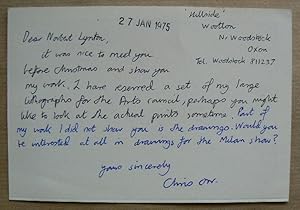 27 JAN 1975
'Hillside'
Wootton
Nr Woodstock
Oxon
Tel. Woodstock 811237
Dear Norbert Lynton,
it was nice to meet you
before Christmas and show you
my work. I have reserved a set of my large
lithographs for the Arts Council, perhaps you might
like to look at the actual prints sometime. Part of
my work I did not show you is the drawings. Would you
be interested at all in drawings for the Milan show?
yours sincerely
Chris Orr.